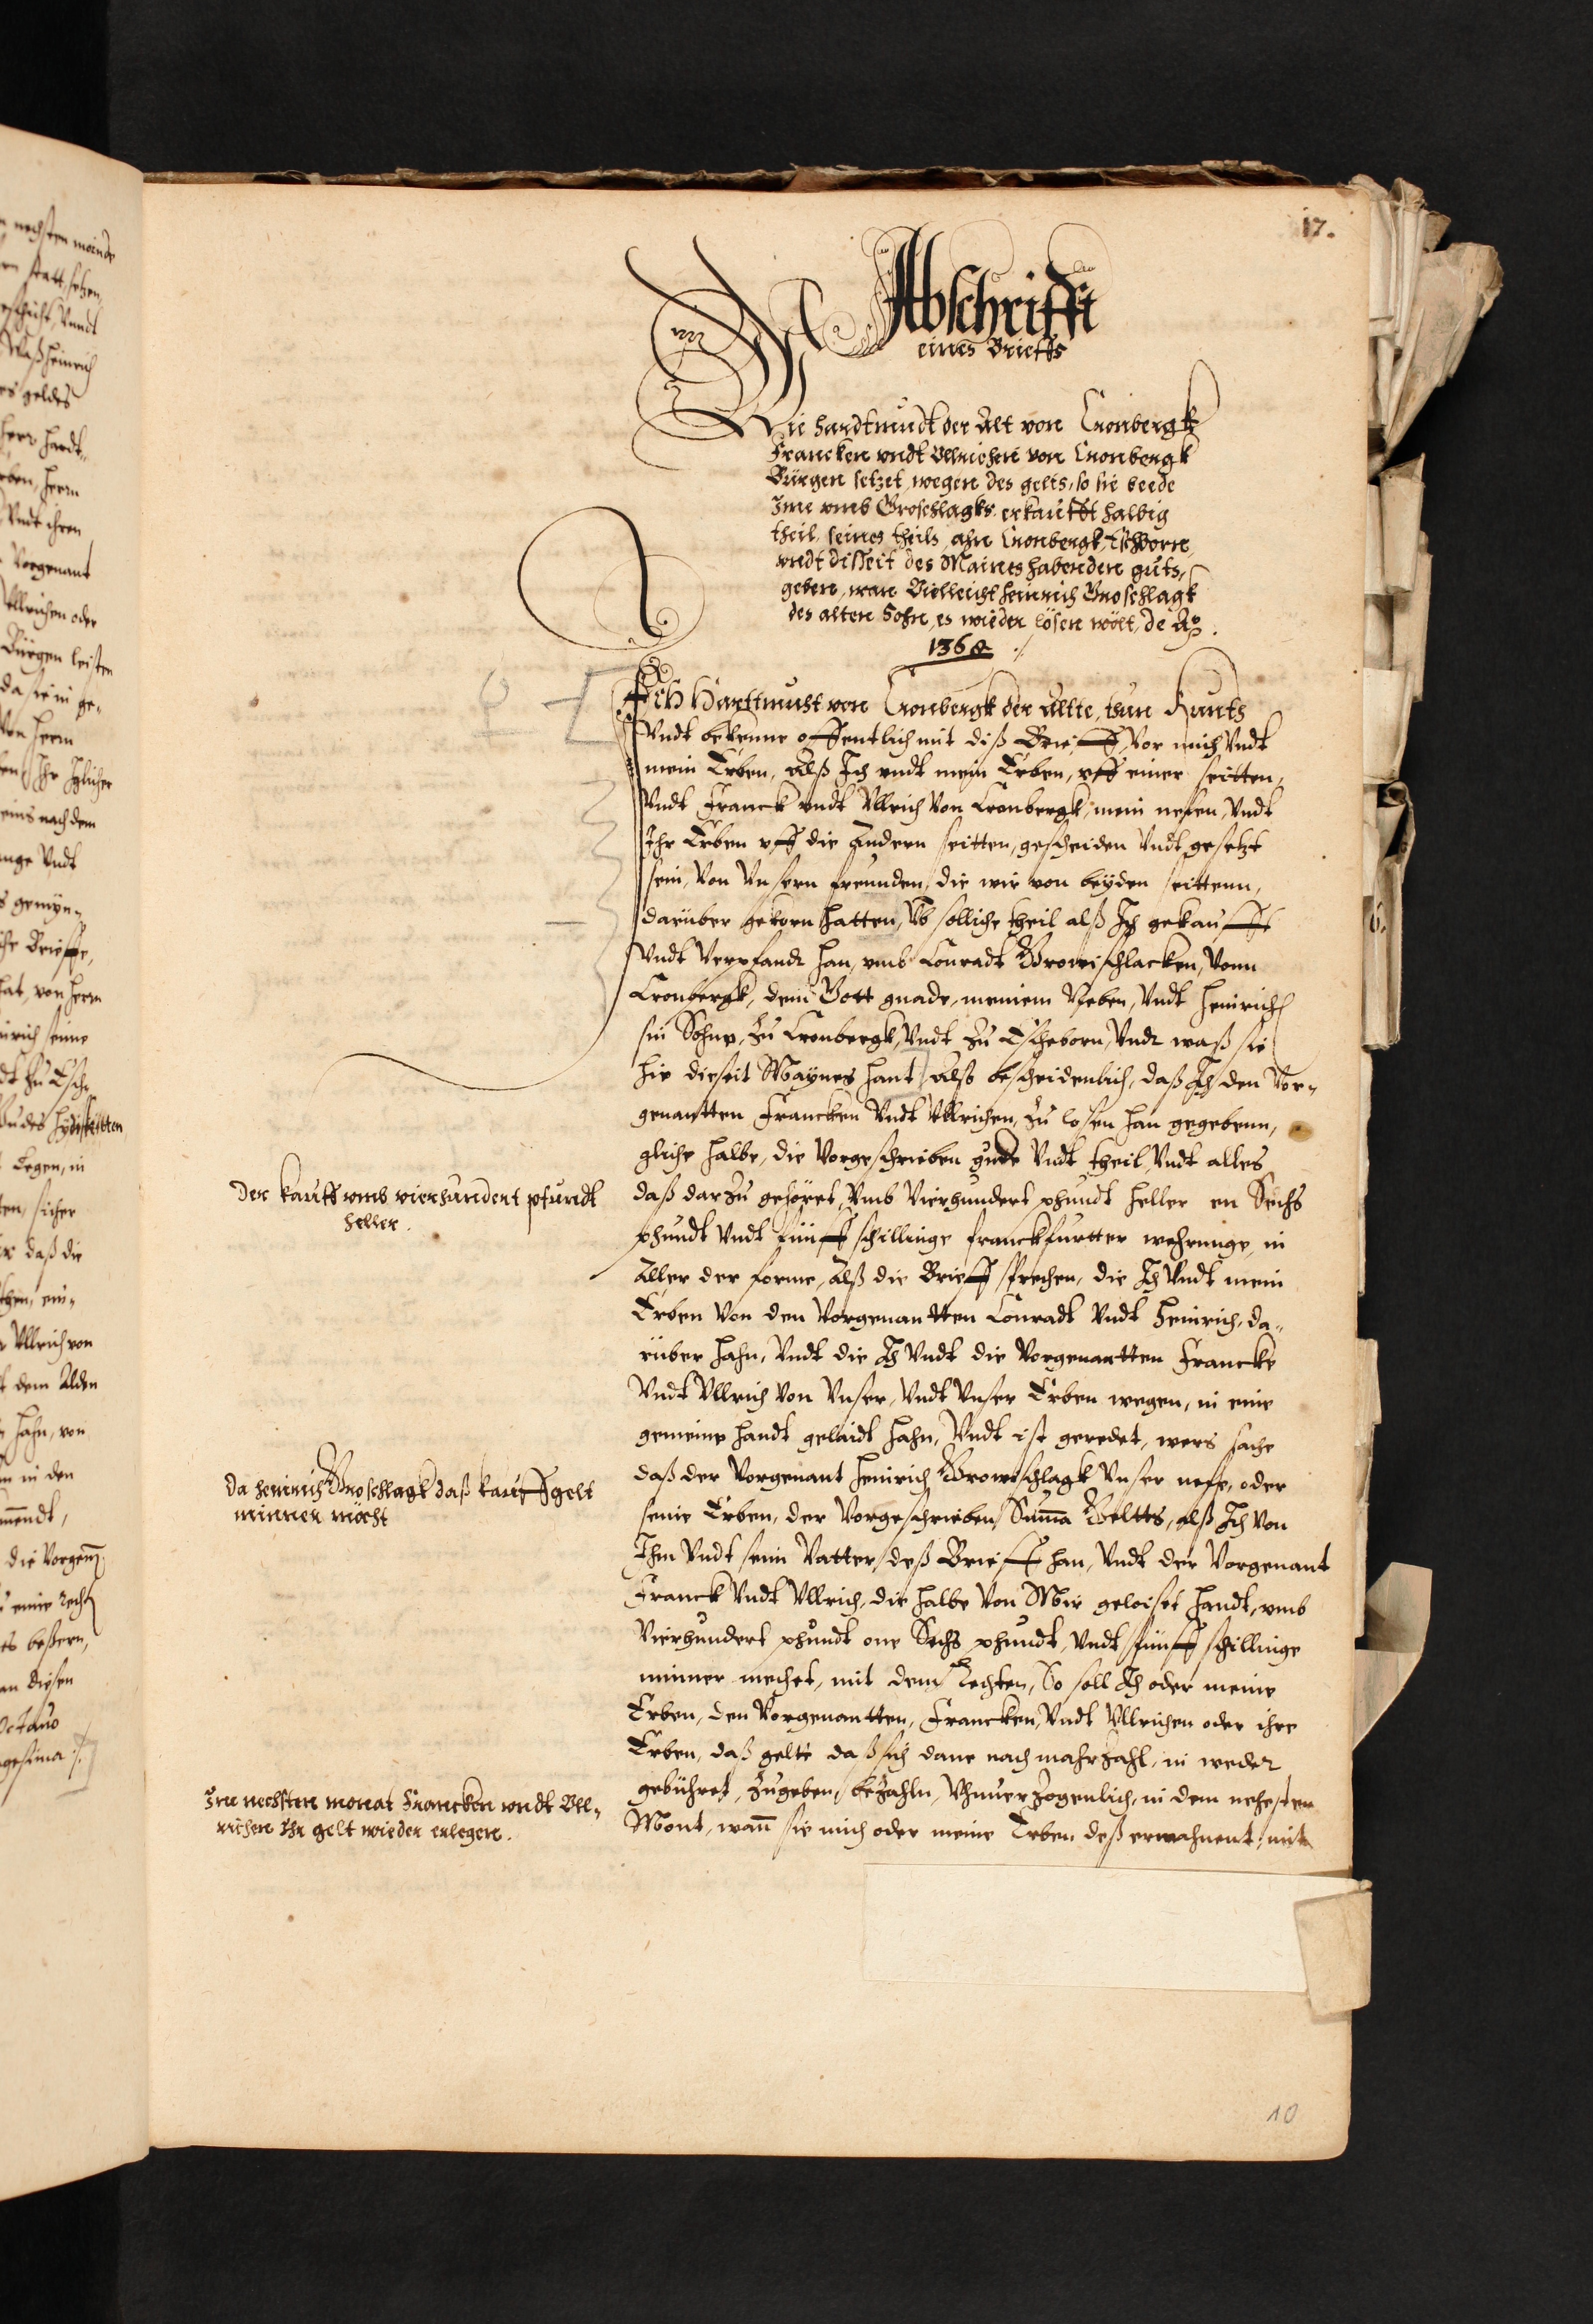 17.
Abschrifft
eines Brieffs
Wie Hardtmudt der Alt von Cronbergk
Francken vndt Vllrichen von Cronbergk
Bürgen setzet, wegen des gelts, so sie beede
Ime vmb Groschlagks erkaufft halbig
theil, seines theils, ahn Cronbergk, Eschborn,
vndt disseit des Maines habenden guts,
geben, wan Vielleicht Heinrich Groschlagk
des alten Sohn, es wieder lösen wölt, de Ao.
1368 ./.
Ich Harttmuht von Cronbergk der Altte, thun Kunth
Vndt bekenne offentlich mit diß Brieff, Vor mich Vndt
mein Erben, Alß Ich vndt mein Erben, vff einer seitten,
Vndt Franck vndt Vllrich Von Cronbergk, mein nefen, Vndt
Ihr Erben vff die Andern seitten, gescheiden Vndt gesetzt
sein, Von Vnsern freunden, die wir von beyden seittenn,
darüber gekorn hatten, Vb solliche theil alß Ich gekaufft
Vndt Verpfandt han, vmb Conradt Growschlacken, Vonn
Cronbergk, dem Gott gnade, meinem Neben, Vndt Heinrich
sin Sohne, Zu Cronbergk, Vndt Zu Escheborn, Vndt waß sie
hie dieseit Maynes hant, Alß bescheidenlich, daß Ich den Vor-
genantten Francken Vndt Vllrichen, Zu losen han gegebenn,
gliche halbe, die Vorgeschrieben gude Vndt theil, Vndt alles
daß darZu gehöret, Vmb Vierhundert phundt heller en Sechs
phundt Vndt fünff schillinge franckfurtter wehrunge, in
Aller der forme, Alß die Brieff sprechen, die Ich Vndt mein
Erben Von den Vorgenantten Conradt Vndt Heinrich, da-
rüber hahn, Vndt die Ich Vndt die Vorgenantten Francke
Vndt Vllrich Von Vnser, Vndt Vnser Erben wegen, in eine
gemeine handt gelaidt hahn, Vndt ist geredet, wers sache
daß der Vorgenant Heinrich Growschlagk Vnser nefe, oder
seine Erben, der Vorgeschrieben Summa Geltts, alß Ich Von
Ihm Vndt seim Vatter, deß Brieff han, Vndt der Vorgenant
Franck Vndt Vllrich, die halbe Von Mir geloiset handt, vmb
Vierhundert phundt one Sechs phundt, Vndt fünff schillinge
minner mechet, mit dem Rechten, So soll Ich oder meine
Erben, den Vorgenantten, Francken, Vndt Vllrichen oder ihre
Erben, daß gelte daß sich dane nach mahrZahl, in weder
gebühret, Zugeben, beZahln, VhnuerZogenlich, in dem nehesten
Mont, wann sie mich oder meine Erben deß ermahnent, mit
Der kauff vmb vierhundert pfundt
heller.
Da Heinrich Groschlagk daß kauffgelt
minner möcht
Im nechsten monat Francken vndt Vll-
richen Ihr gelt wieder erlegen.
10